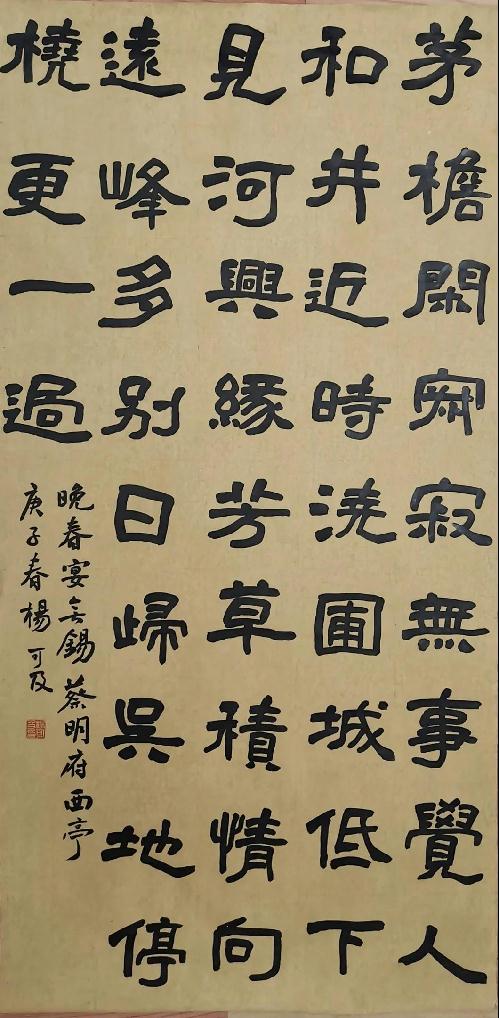 茅檐閑寂寂無事覺人
和井近時澆圃城低下
見河興緣芳草積情向
遠峰多别日歸吳地停
橈更一過
晚春宴无錫蔡明府西亭
庚子春楊可及